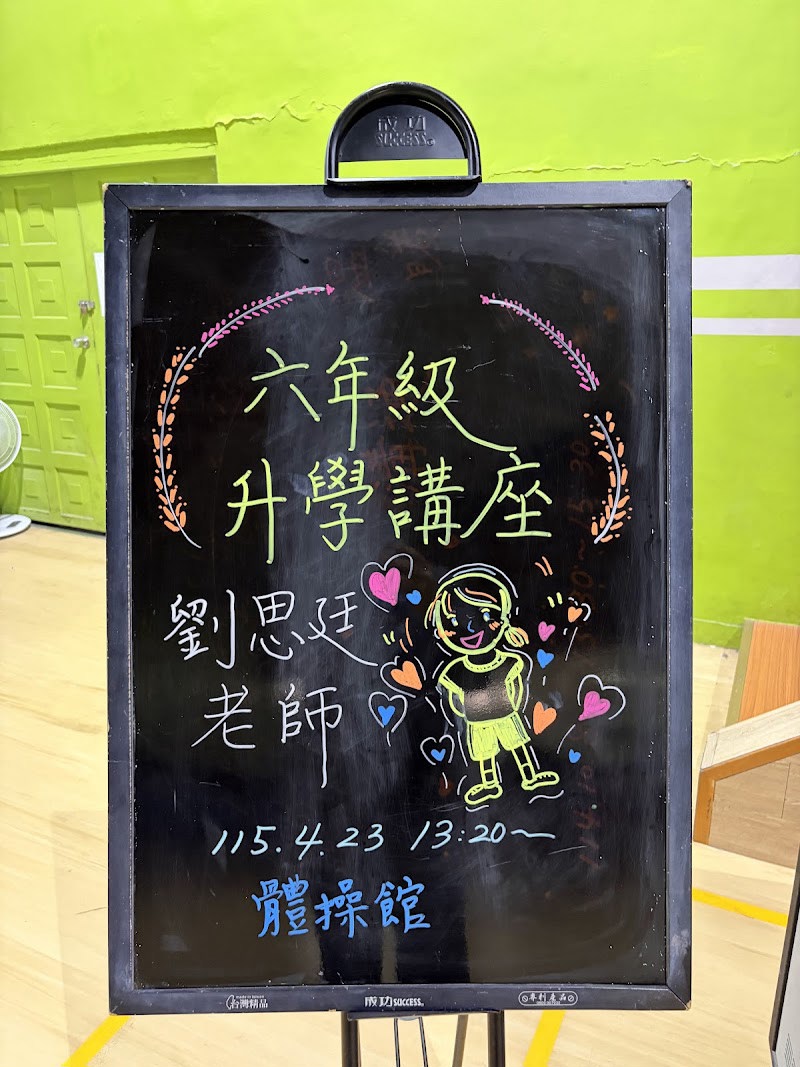 成功
SUCCESS
六年級
升學講座
劉思廷
老師
115.4.23 13:20~
體操館
台灣精品
成功SUCCESS
專利產品